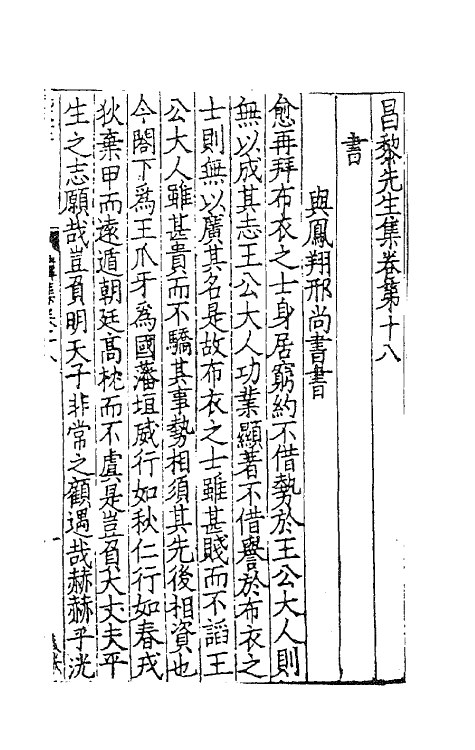 昌黎先生集卷第十八
書
與鳳翔邢尚書書
愈再拜布衣之士身居窮約不借勢於王公大人則
無以成其志王公大人功業顯著不借譽於布衣之
士則無以廣其名是故布衣之士雖甚賤而不諂王
公大人雖甚貴而不驕其事勢相須其先後相資也
今閣下爲王爪牙爲國藩垣威行如秋仁行如春戎
狄棄甲而遠遁朝廷高枕而不虞是豈負大丈夫平
生之志願哉豈負明天子非常之顧遇哉赫赫乎洸